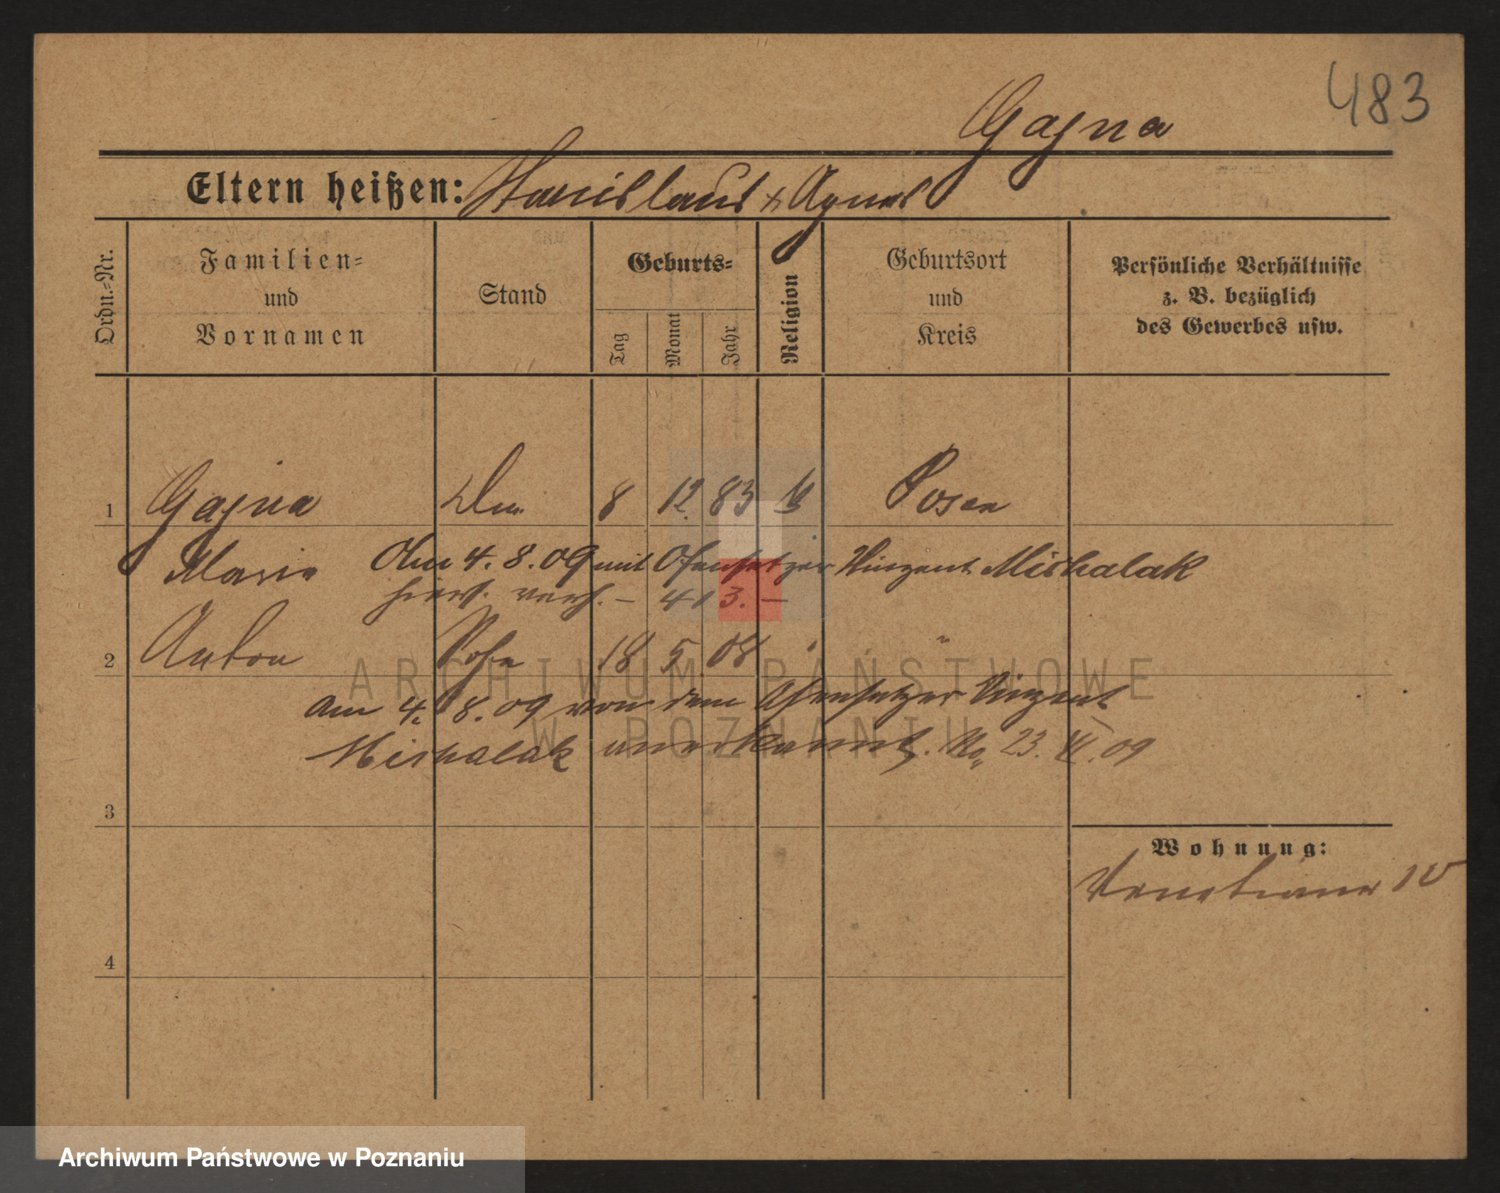 483
Gajna
Eltern heißen: Stanislaus & Agnes
Ordn.-Nr.
Familien-
und
Vornamen
Stand
Geburts-
Tag
Monat
Jahr
Religion
Geburtsort
und
Kreis
Persönliche Verhältnisse
z. B. bezüglich
des Gewerbes usw.
1 Gajna 8 12. 83 Posen
Marie Am 4. 8. 09 mit Ofensetzer Vinzent Michalak
hier verh. – 413. –
2 Anton Sohn 18 5 08 " "
Am 4. 8. 09 von dem Ofensetzer Vinzent
Michalak anerkannt. 23. 09
3
Wohnung:
Venetianer 10
4
ARCHIWUM PAŃSTWOWE
W POZNANIU
Archiwum Państwowe w Poznaniu